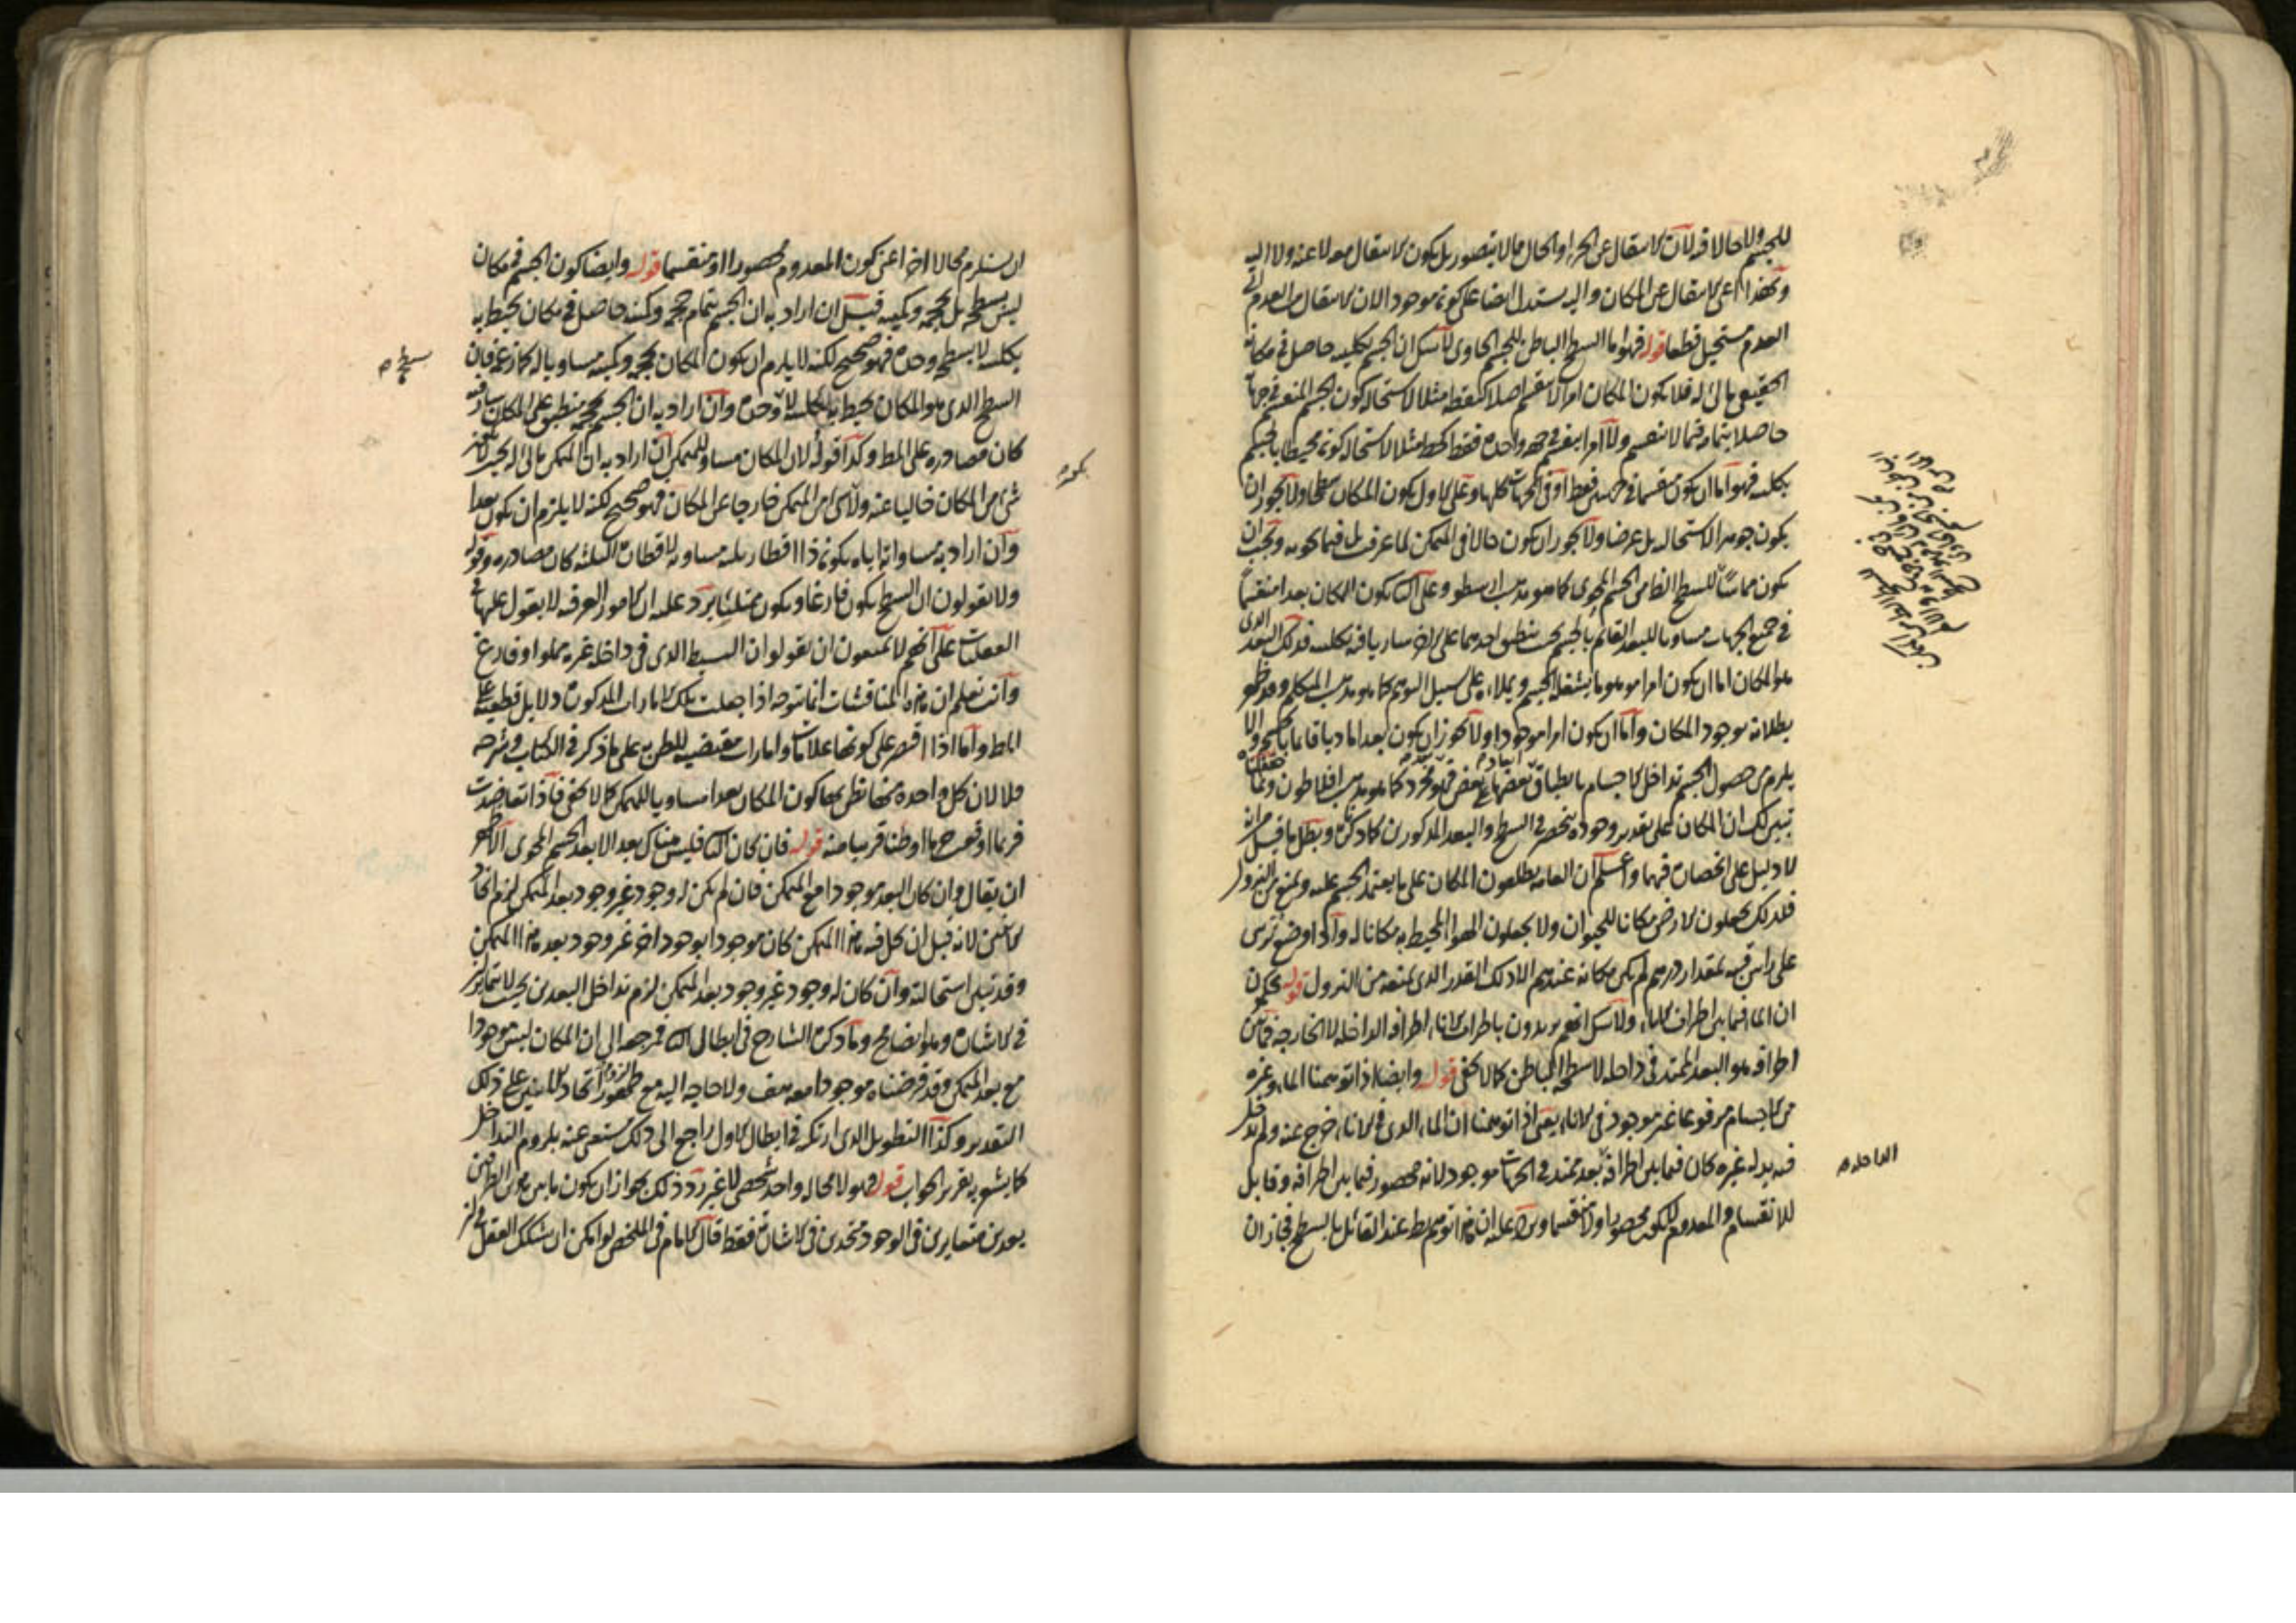 للجسم ولا حالا فيه لان الانتقال عن الجزء او الحال مما لا يتصور بل يكون الانتقال معه لا عنه ولا اليه
وبهذا اعنى الانتقال عن المكان واليه يستدل ايضا على كونه موجودا لان الانتقال من العدم الى
العدم مستحيل قطعا قوله فهو اما السطح الباطن للجسم الحاوى لا شك ان الجسم بكليته حاصل فى مكانه
الحقيقى مالئ له فلا يكون المكان امرا لا ينقسم اصلا كنقطة مثلا لاستحالة كون الجسم المنقسم فى جهاته
حاصلا بتمامه فيما لا ينقسم ولا امرا ينقسم فى جهة واحدة فقط كخط مثلا لاستحالة كونه محيطا بالجسم
بكليته فهو اما ان يكون منقسما فى جهتين فقط او فى الجهات كلها وعلى الاول يكون المكان سطحا ولا يجوز ان
يكون جوهرا لاستحالته بل عرضا ولا يجوز ان يكون حالا فى المتمكن لما عرفت بل فيما يحويه ويجب ان
يكون مماسا للسطح الظاهر من الجسم المحوى كما هو مذهب ارسطو وعلى الثانى يكون المكان بعدا منقسما
فى جميع الجهات مساويا للبعد القائم بالجسم بحيث ينطبق احدهما على الاخر ساريا فيه بكليته فذلك البعد الذى
هو المكان اما ان يكون امرا موهوما يشغله الجسم ويملاءه على سبيل التوهم كما هو مذهب المتكلم وقد ظهر
بطلانه بوجود المكان واما ان يكون امرا موجودا ولا يجوز ان يكون بعدا ماديا قائما بالجسم والا
يلزم من حصول الجسم تداخل الاجسام بانطباق بعضها على بعض فهو مجرد كما هو مذهب افلاطون ولما
تبين لك ان المكان على تقدير وجوده ينحصر فى السطح والبعد المذكورين كما ذكره وبطل ما قيل من انه
لا دليل على انحصاره فيهما واعلم ان العامة يطلقون المكان على ما يعتمد الجسم عليه ويمنعه من النزول
فلذلك يجعلون الارض مكانا للحيوان ولا يجعلون الهواء المحيط به مكانا له واذا وضع ترس
على راس قبة بمقدار درهم لم يكن مكانه عندهم الا ذلك القدر الذى يمنعه من النزول قوله
ان الماء فيما بين اطراف الاناء ولا شك انهم يريدون باطراف الاناء اطرافه الداخلة لا الخارجة فما بين
اطرافه هو البعد الممتد فى داخله لا سطحه الباطن كما لا يخفى قوله وايضا اذا توهمنا الماء وغيره
من الاجسام مرفوعا غير موجود فى الاناء يعنى اذا توهمنا ان الماء الذى فى الاناء خرج عنه ولم يدخل
فيه بدله غيره كان فيما بين اطرافه بعد ممتد فى الجهات موجود لانه محصور فيما بين اطرافه وقابل
للانقسام والمعدوم لا يكون محصورا ولا منقسما ويرد عليه ان هذا توهم عند القائل بالسطح فجاز ان
الداخلة
ان يستلزم محالا اخر اعنى كون المعدوم محصورا او منقسما قوله وايضا كون الجسم فى مكان
ليس بسطحه بل بحجمه وكميته قيل ان اراد به ان الجسم بتمام حجمه وكميته حاصل فى مكان يحيط به
بكليته لا بسطحه وحده فهو صحيح لكنه لا يلزم ان يكون المكان بحجمه وكميته مساويا له كما زعمه فان
السطح الذى هو المكان يحيط به بكليته لا وحده وان اراد به ان الجسم بحجمه ينطبق على المكان
كان مصادرة على المط وكذا قوله لان المكان مساو للمتمكن ان اراد به ان المتمكن مالئ له بحيث
شئ من المكان خاليا عنه ولا شئ من المتمكن خارجا عن المكان فهو صحيح لكنه لا يلزم ان يكون بعدا
وان اراد به مساواته اياه بكونه ذا اقطار ثلثة مساوية لاقطاره الثلثة كان مصادرة وقوله
ولا يقولون ان السطح يكون فارغا ويكون ممتلئا يرد عليه ان الامور العرفية لا يعول عليها فى
العقليات على انهم لا يمنعون ان يقولوا ان البسيط الذى فى داخله غيره مملو او فارغ
وانت تعلم ان هذه المناقشات انما تتوجه اذا جعلت تلك الامارات المذكورة دلايل قطعية على
المط واما اذا اقتصر على كونها علامات وامارات مقتضية للظن به على ما ذكر فى الكتاب وشرحه
فلا لان كل واحدة منها تظن بها كون المكان بعدا مساويا للمتمكن كما لا يخفى فاذا تعاضدت
فربما اوقعت جزما او ظنا قريبا منه قوله فان كان الثانى فليس هناك بعد الا بعد الجسم المحوى الاظهر
ان يقال وان كان البعد موجودا مع المتمكن فان لم يكن له وجود غير وجود بعد المتمكن لزم اتحاد
الاثنين لانه قبل ان حل فيه هذا المتمكن كان موجودا بوجود اخر غير وجود بعد هذا المتمكن
وقد تبين استحالته وان كان له وجود غير وجود بعد المتمكن لزم تداخل البعدين بحيث لا تمايز
فى الاشارة وهو ايضا مح وما ذكره الشارح فى ابطال الثانى مرجعه الى ان المكان ليس موجودا
مع بعد المتمكن وقد فرضناه موجودا معه هف ولا حاجة اليه مع ظهور لزوم اتحاد الاثنين على ذلك
التقدير وكذا التطويل الذى ارتكبه فى ابطال الاول راجع الى ذلك مستغنى عنه بلزوم التداخل
كما يشعر به تقرير الجواب قوله فهو لا محالة واحد شخصى لا غير رد ذلك بجواز ان يكون ما بين هذين الطرفين
بعدين متغايرين فى الوجود متحدين فى الاشارة فقط قال الامام فى الملخص لو امكن ان يشكك العقل